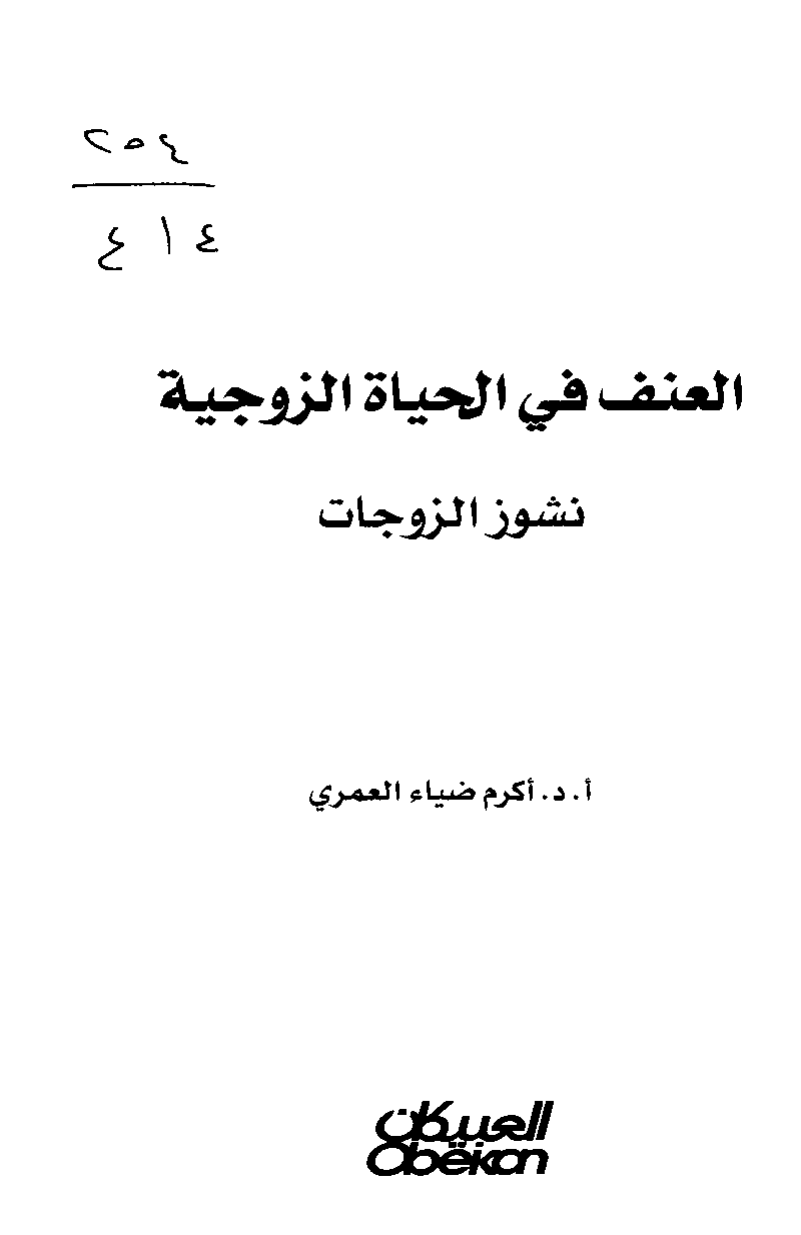 ٢٥٤
٤١٤
العنف في الحياة الزوجية
نشوز الزوجات
أ. د. أكرم ضياء العمري
العبيكان
Obëikan